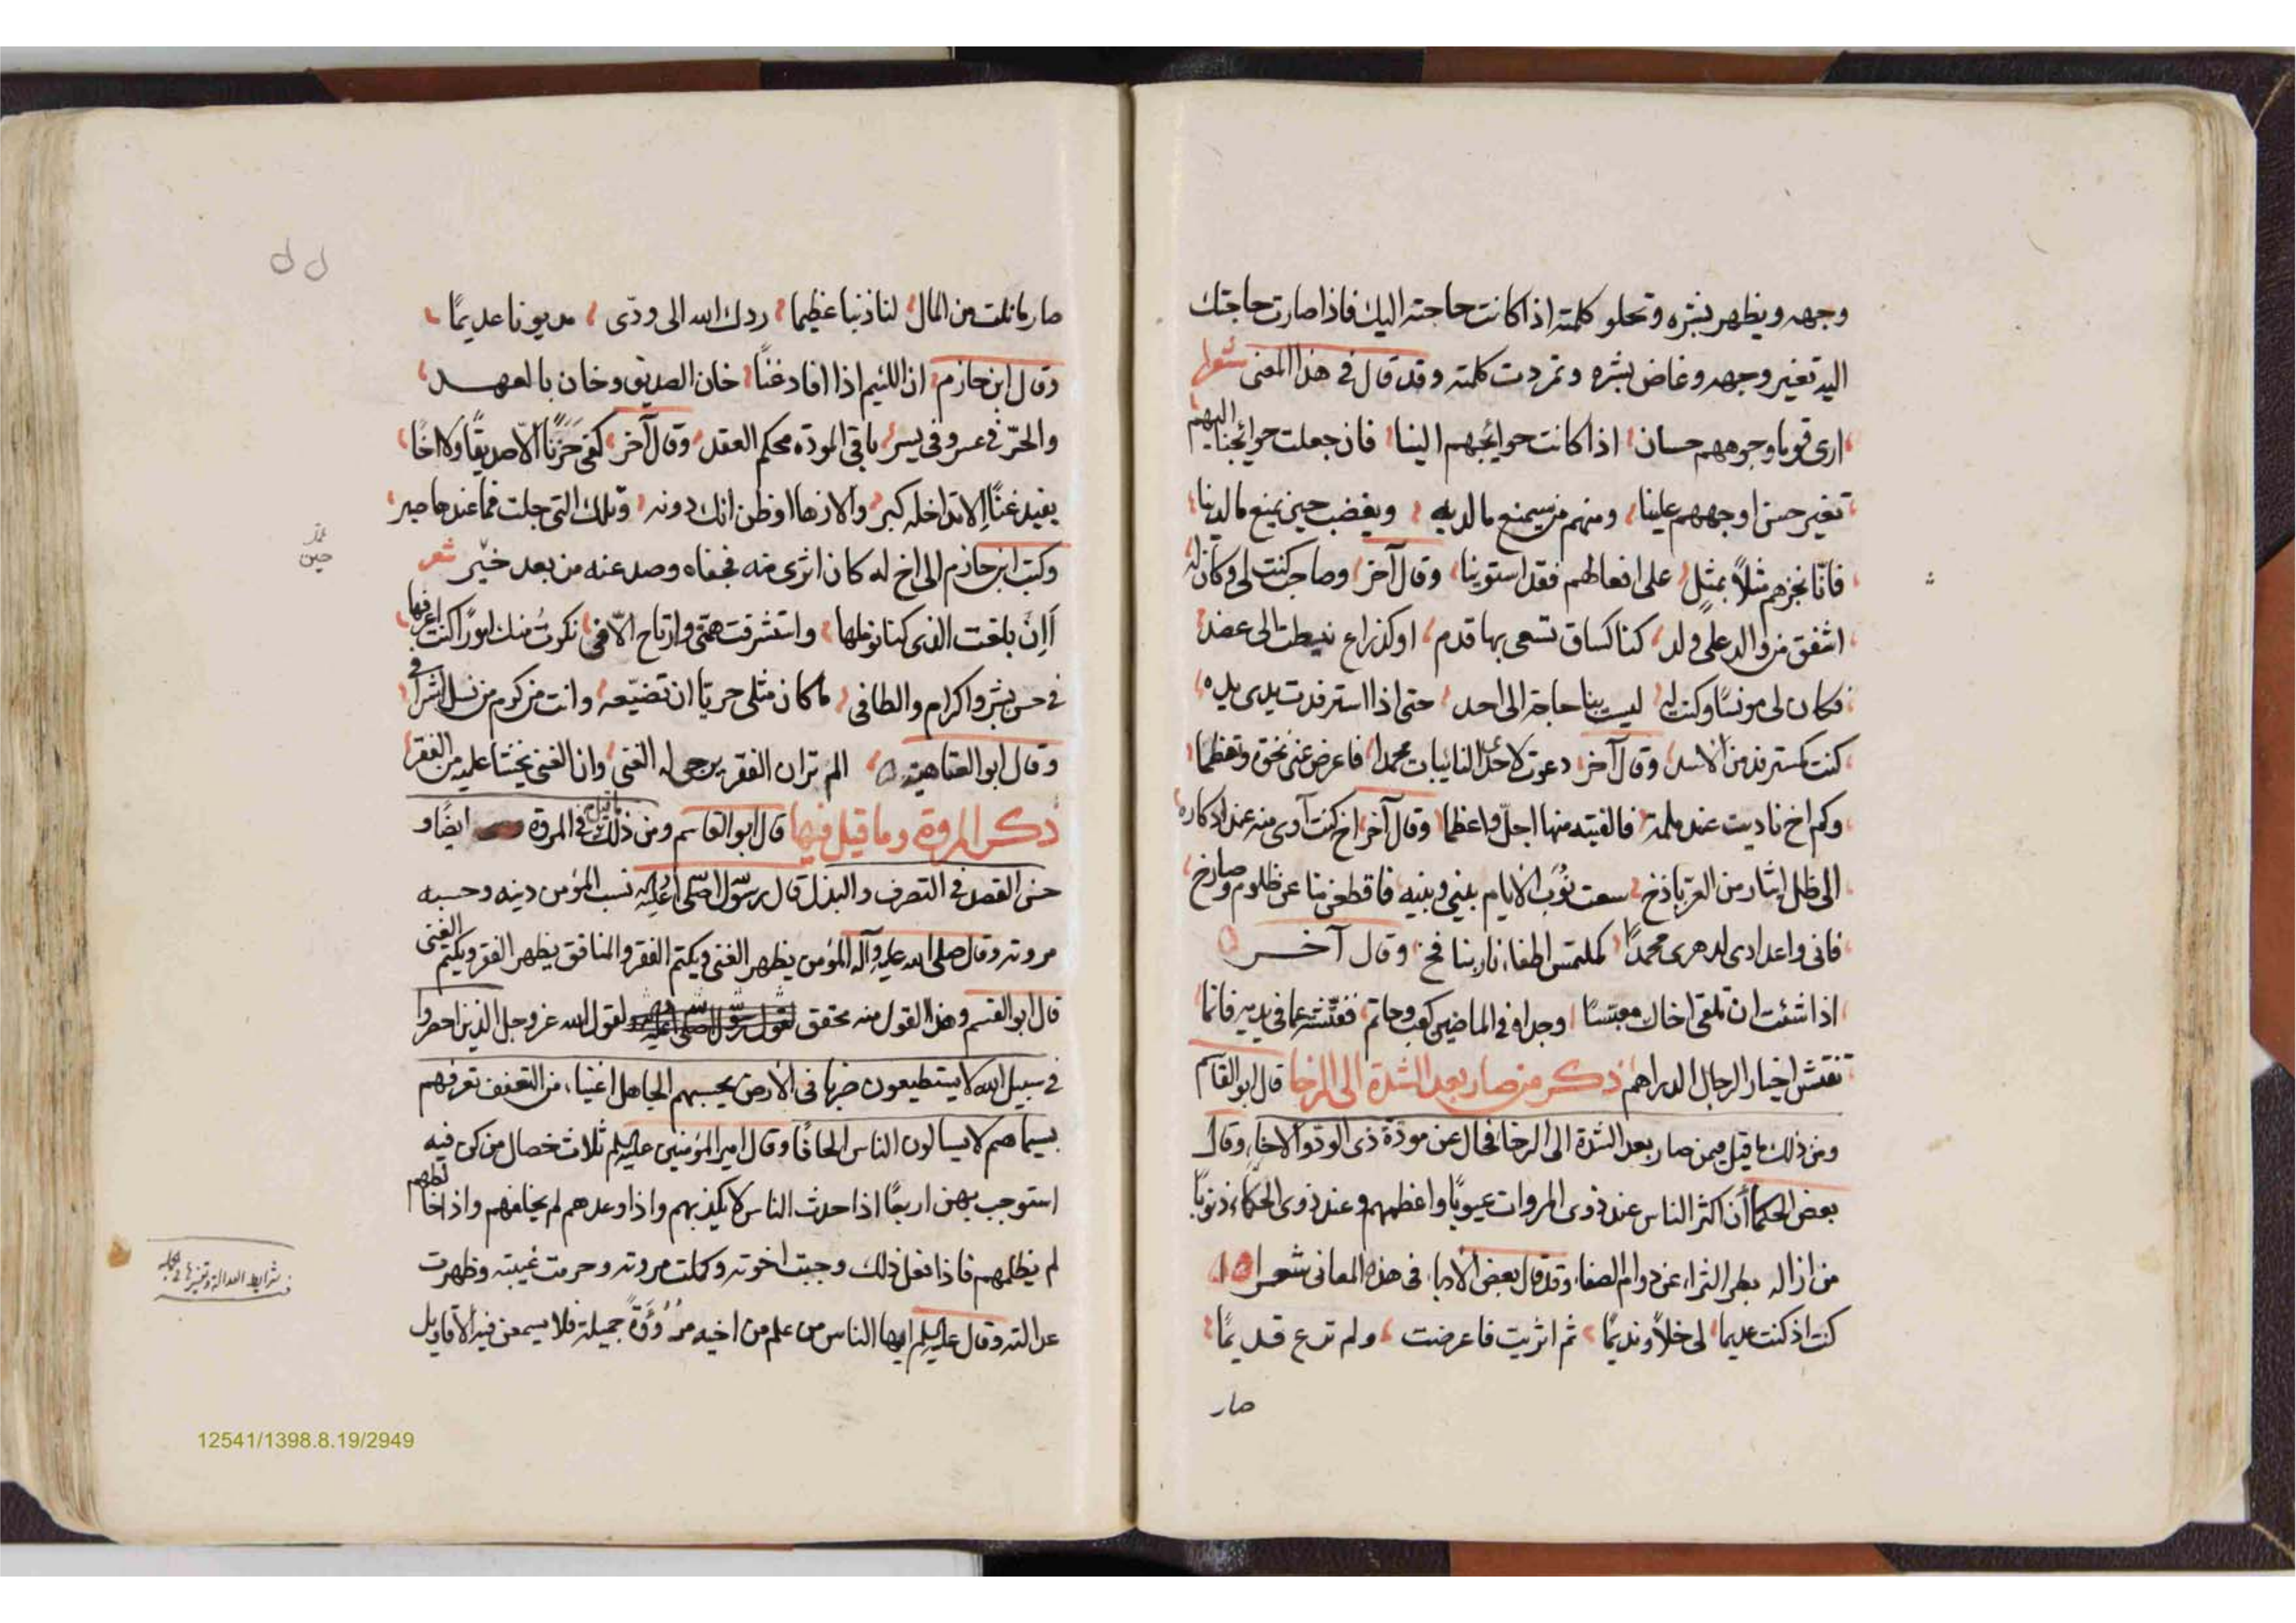 وجهه ويظهر بشره وتحلو كلمته اذا كانت حاجته اليك فاذا صارت حاجتك
اليه تغير وجهه وغاض بشره وتمردت كلمته وقد قال في هذا المعنى شعرا
ارى قوما وجوههم حسان اذا كانت حوايجهم الينا فان جعلت حوائجنا اليهم
تغير حسن اوجههم علينا ومنهم من سيمنع ما لديه ويغضب حين نمنع ما لدينا
فانا نجزهم مثلاً بمثل على افعالهم فقد استوينا وقال آخر وصاحب كنت لي وكان له
اشفق من والد على ولد كنا كساق تسعى بها قدم او كذراع نيطت الى عضد
فكان لى مونسًا وكنت له ليست بنا حاجة الى احد حتى اذا استرفدت يدى يده
كنت كمسترفد من الاسد وقال آخر دعوت لاحدى النائبات محمدا فاعرض عنى نخوة وتعظما
وكم اخ ناديت عند ملمة فالفيته منها اجل واعظما وقال آخر اخ كنت آوى منه عند ادكاره
الى ظل اثار من العز باذخ سعت نُوَب الايام بينى وبينه فاقطعن منا عن ظلوم وصارخ
فانى واعدادى لدهرى محمدًا كملتمس اطفاء نار بنافخ وقال آخر
اذا شئت ان تلقى اخاك معبسًا وجداه في الماضين كعب وحاتم ففتشه عما في يديه فانما
تفتش اخبار الرجال الدراهم ذكر من صار بعد الشدة الى الرخا قال ابو القاسم
ومن ذلك ما قيل فيمن صار بعد الشدة الى الرخا فحال عن مودة ذى الود والاخاء وقال
بعض الحكما أن اكثر الناس عند ذوى المروات عيوبًا واعظمهم عند ذوى الحكاء ذنوبًا
من ازاله بطر الثراء عن دوام الصفاء وقد قال بعض الادبا في هذه المعانى شعرا
كنت اذ كنت عديما لى خلاً ونديمًا ثم اثريت فاعرضت ولم ترع قديمًا
صار
صار ما نلت من المال لنا ذنبا عظيما ردك الله الى ودّى مديونا عديمًا
وقال ابن حازم ان اللئيم اذا افاد غنًا خان الصديق وخان بالعهد
والحرّ في عسر وفى يسر باقي المودة محكم العقد وقال آخر كفى حَزَنًا الّا صديقًا ولا اخًا
يفيد غنًا الا تداخله كبر والا زها او ظن انك دونه وتلك التى جلت فما عندها صبر
وكتب ابن حازم الى اخ له كان اثرى منه فجفاه وصد عنه من بعد خيّر شعر
أإن بلغت الذى كنا نوملها واستشرفت همتى وارتاح الّافى نكرتُ منك امورًا كنت اعرفها
في حسن بشر واكرام والطافى ما كان مثلى حريّا ان تضيّعه وانت من كرم من نسل اشراف
وقال ابو العتاهيه الم تر ان الفقر يرجى له الغنى وان الغنى يخشا عليه من الفقر
ذكر المروة وما قيل فيها قال ابو القاسم ومن ذلك ما قيل في المروة ايضًا و
حسن القصد في التصرف والبذل قال رسول الله صلى الله عليه نسب المؤمن دينه وحسبه
مروته وقال صلى الله عليه وآله المؤمن يظهر الغنى ويكتم الفقر والمنافق يظهر الفقر ويكتم الغنى
قال ابو القسم وهذا القول منه تحقق لقول رسول الله صلى الله عليه لقول الله عز وجل الذين احصروا
في سبيل الله لا يستطيعون ضربا في الأرض يحسبهم الجاهل اغنياء من التعفف تعرفهم
بسيماهم لا يسالون الناس الحافًا وقال امير المؤمنين عليه السلم ثلاث خصال من كن فيه
استوجب بهن اربعًا اذا حدث الناس لا يكذبهم واذا وعدهم لم يخلفهم واذا خالطهم
لم يظلمهم فاذا فعل ذلك وجبت اخوته وكملت مروته وحرمت غيبته وظهرت
عدالته وقال عليه السلم ايها الناس من علم من اخيه مُرُوَّةً جميلة فلا يسمعن فيه الاقاويل
شرايط العدالة
12541/1398.8.19/2949